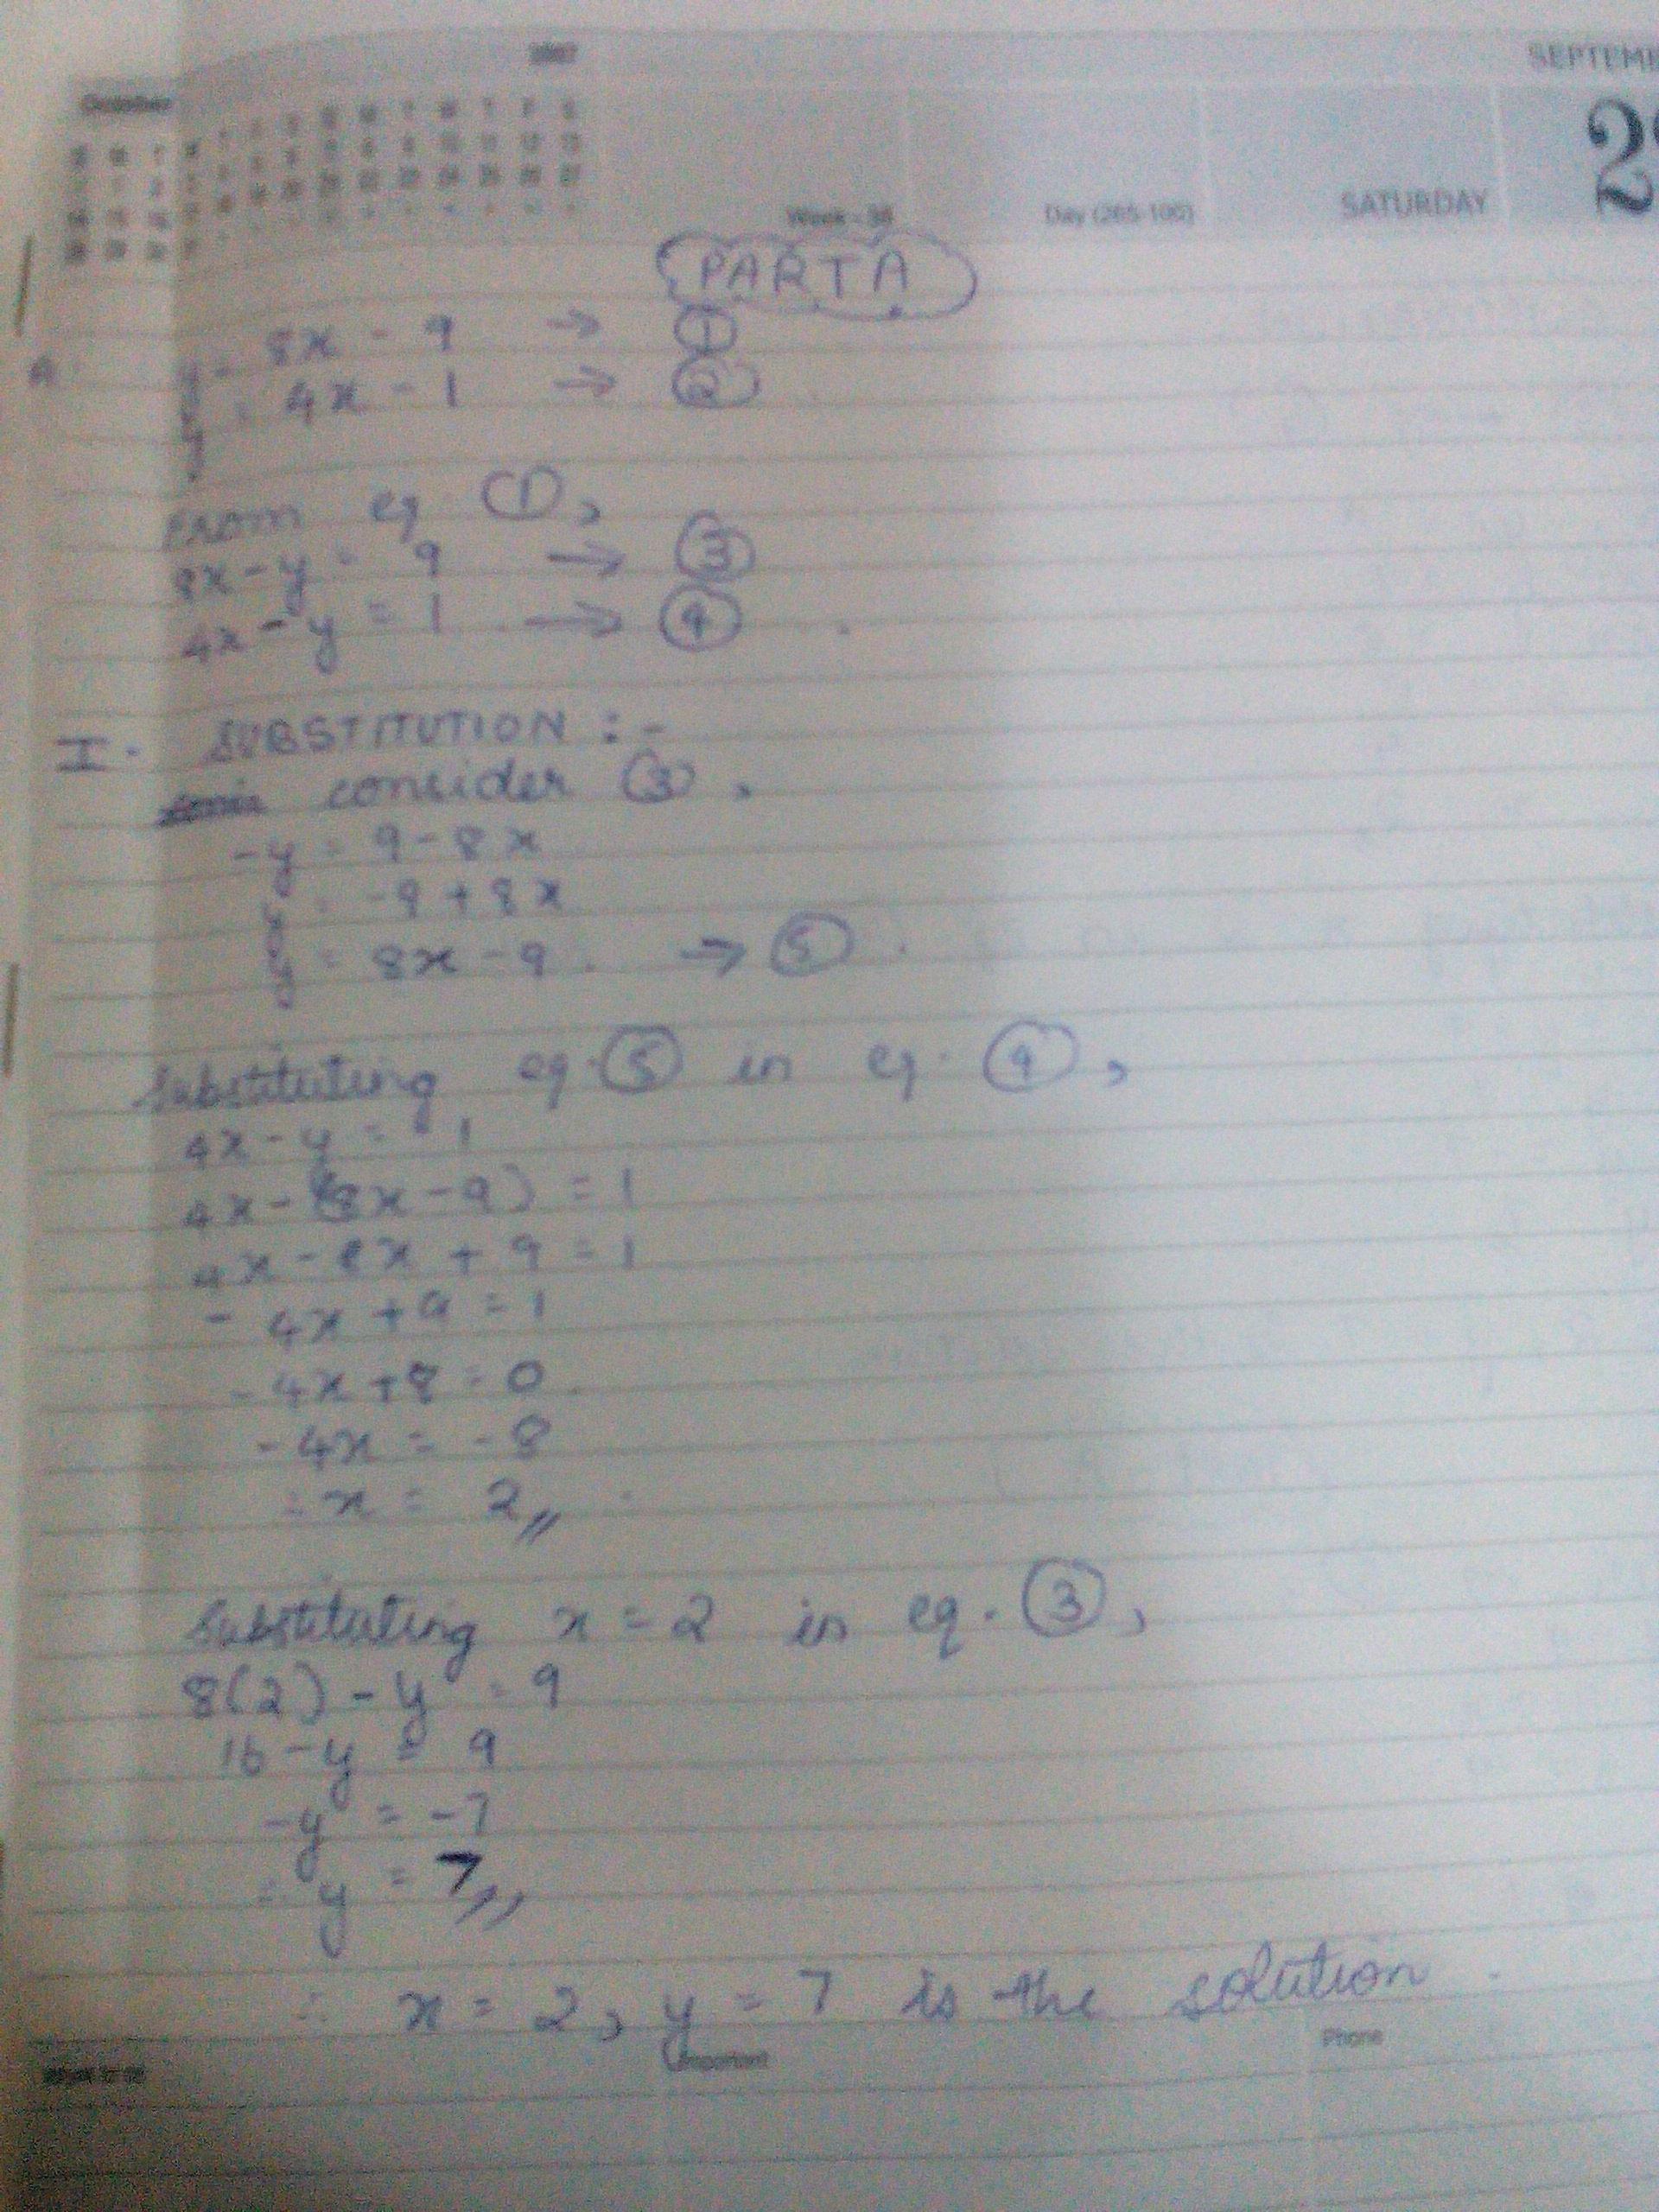 October
SEPTEMB
SATURDAY
Week - 38
Day (265-100)
PART A
y = 8x - 9 → ①
y = 4x - 1 → ②
From eq ①,
8x - y = 9 → ③
4x - y = 1 → ④
I. SUBSTITUTION :-
consider ③,
-y = 9 - 8x
y = -9 + 8x
y = 8x - 9 . → ⑤ .
Substituting eq. ⑤ in eq. ④,
4x - y = 1
4x - (8x - 9) = 1
4x - 8x + 9 = 1
- 4x + 9 = 1
- 4x + 8 = 0 .
- 4x = - 8
∴ x = 2,, .
Substituting x = 2 in eq. ③,
8(2) - y = 9
16 - y = 9
-y = -7
∴ y = 7,,
∴ x = 2, y = 7 is the solution .
Important
Phone